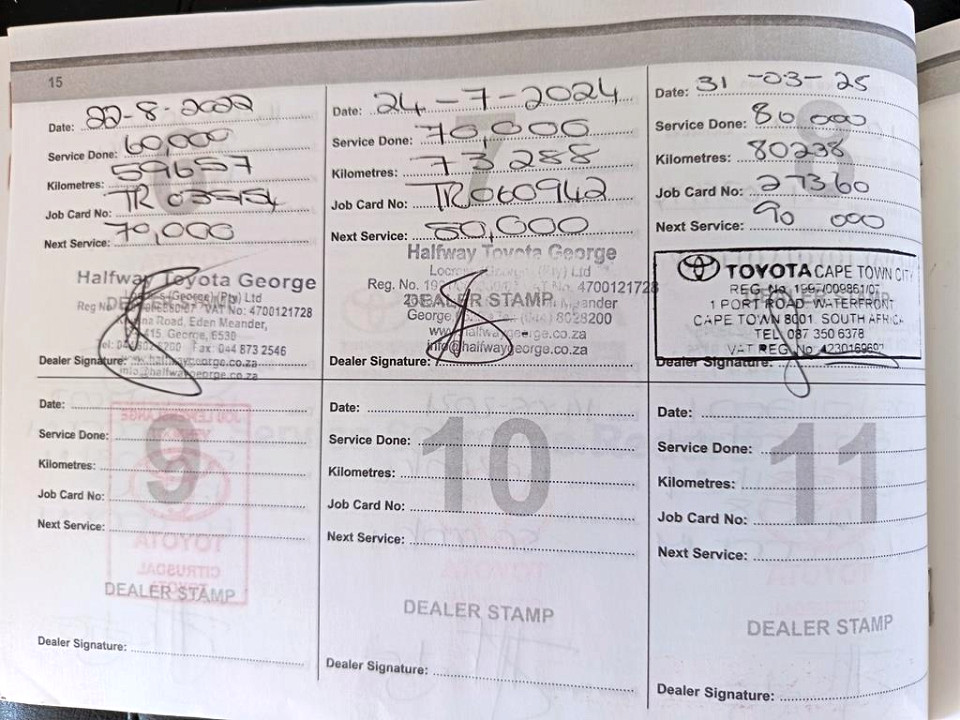 15
Date: 22-8-2022
Service Done: 60,000
Kilometres: 59657
Job Card No:
Next Service: 70,000
Halfway Toyota George
(George) (Pty) Ltd
VAT No: 4700121728
Road, Eden Meander,
George, 6530
Fax: 044 873 2546
Dealer Signature:
info@halfwaygeorge.co.za
Date: 24-7-2024
Service Done: 70,000
Kilometres: 73288
Job Card No: TR060942
Next Service: 80,000
Halfway Toyota George
(Pty) Ltd
Reg. No. 4700121728
DEALER STAMP
Meander
George,
8028200
info@halfwaygeorge.co.za
Dealer Signature:
Date: 31-03-25
Service Done: 80 000
Kilometres: 80238
Job Card No: 27360
Next Service: 90 000
TOYOTA CAPE TOWN CITY
REG No 1967/009861/07
1 PORT ROAD WATERFRONT
CAPE TOWN 8001 SOUTH AFRICA
TEL 087 350 6378
VAT REG No
Dealer Signature:
9
Date:
Service Done:
Kilometres:
Job Card No:
Next Service:
DEALER STAMP
Dealer Signature:
10
Date:
Service Done:
Kilometres:
Job Card No:
Next Service:
DEALER STAMP
Dealer Signature:
11
Date:
Service Done:
Kilometres:
Job Card No:
Next Service:
DEALER STAMP
Dealer Signature: